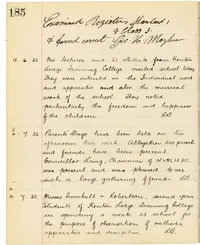 185
Examined Registers, Standard 1
& Class 3.
& found correct Geo. H. Mayhew
15. 6. 22. Two lecturers and 21 students from Kenton
Lodge Training College visited school today.
They were interested in the Individual work
and apparatus and also the musical
work of the school. They noted
particularly the freedom and happiness
of the children.
5. 7. 22. Parents Days have been held on this
afternoon this week. Altogether parents
and friends have been present.
Councillor Laing, Chairman of
was present and was pleased to see
such a large gathering of friends.
6. 7. 22. Misses Turnbull & Robertson, second year
Students of Kenton Lodge Training College
are spending a week at school for
the purpose of observation of methods
apparatus and discipline.